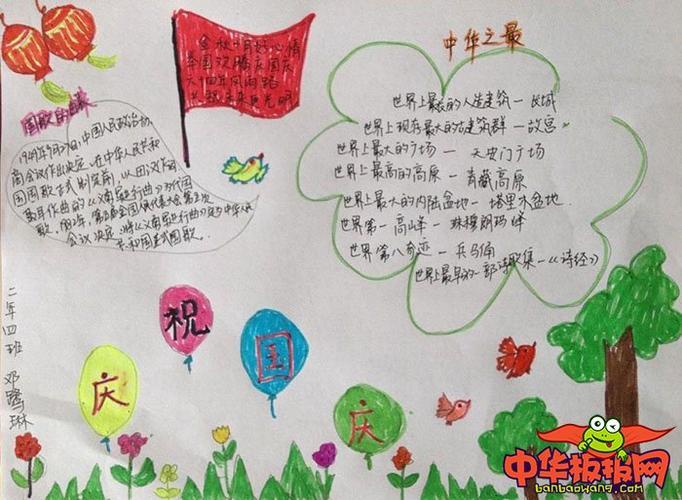 金秋十月好心情
举国欢腾庆国庆
六十四年风雨路
中华之最
世界上最长的人造建筑一长城
世界上现存最大的古建筑群一故宫
世界上最大的广场一天安门广场
世界上最高的高原一青藏高原
世界上最大的内陆盆地一塔里木盆地.
世界第一高峰一珠穆朗玛峰
世界第八奇迹一兵马俑
世界上最早的一部诗歌集一《诗经》
1949年9月27日,中国人民政治协
商会议作出决定,在中华人民共和
国国歌正式制定前,以田汉作词
聂耳作曲的《义勇军进行曲》为代国
会议决定,将《义勇军进行曲》定为中华人民
共和国正式国歌.
二年四班 邓鹭琳
庆
祝
国
庆
中华板报网
banbaowang.com